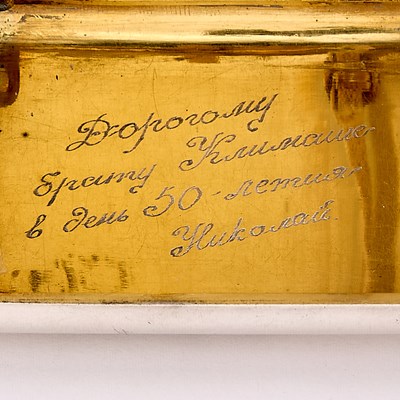 Дорогому
брату Климашке
в день 50-летия
Николай.